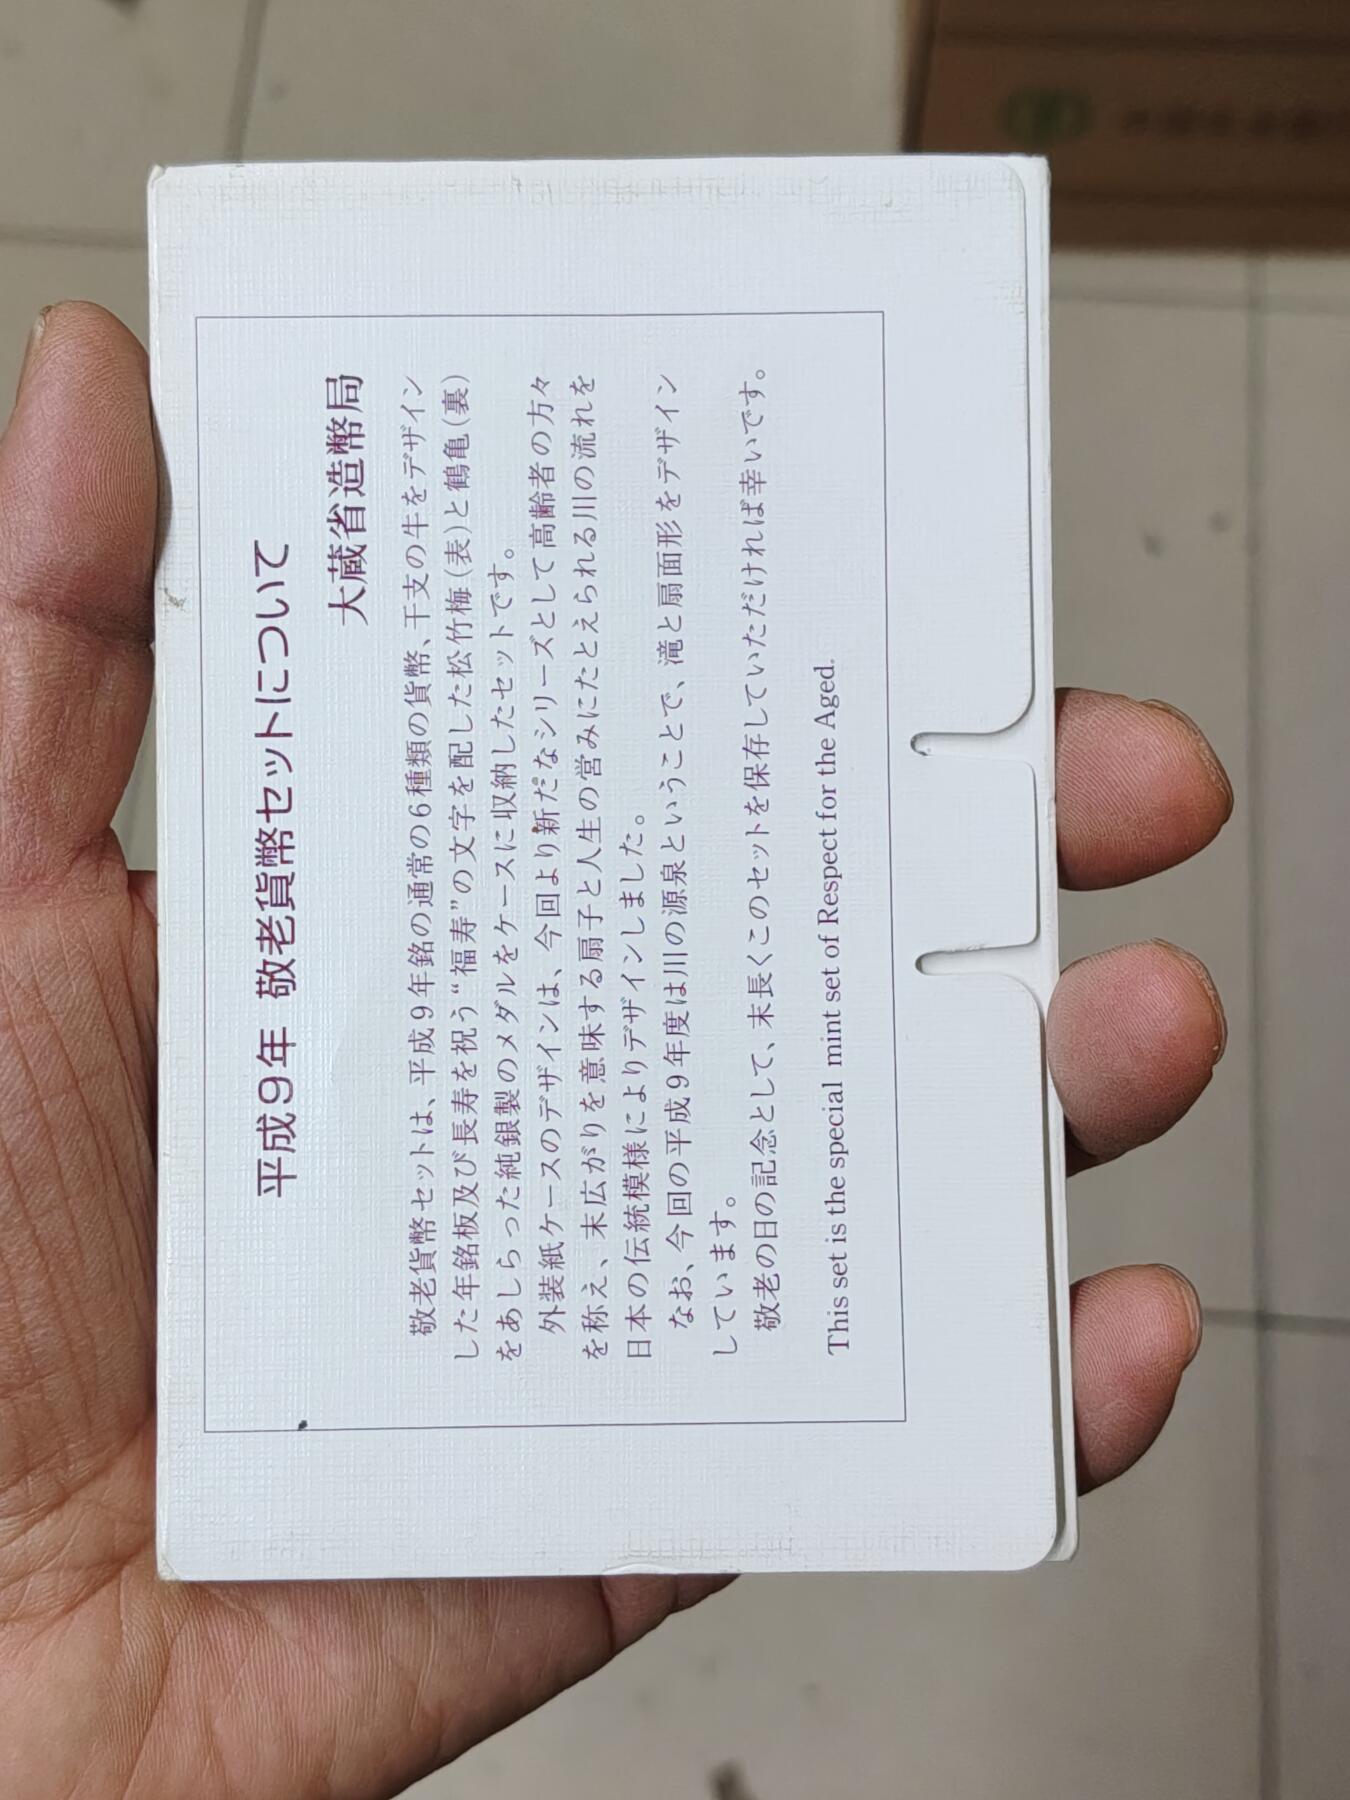 平成9年 敬老貨幣セットについて
大蔵省造幣局
敬老貨幣セットは、平成9年銘の通常の6種類の貨幣、干支の牛をデザイン
した年銘板及び長寿を祝う“福寿”の文字を配した松竹梅(表)と鶴亀(裏)
をあしらった純銀製のメダルをケースに収納したセットです。
外装紙ケースのデザインは、今回より新たなシリーズとして高齢者の方々
を称え、末広がりを意味する扇子と人生の営みにたとえられる川の流れを
日本の伝統模様によりデザインしました。
なお、今回の平成9年度は川の源泉ということで、滝と扇面形をデザイン
しています。
敬老の日の記念として、末長くこのセットを保存していただければ幸いです。
This set is the special mint set of Respect for the Aged.